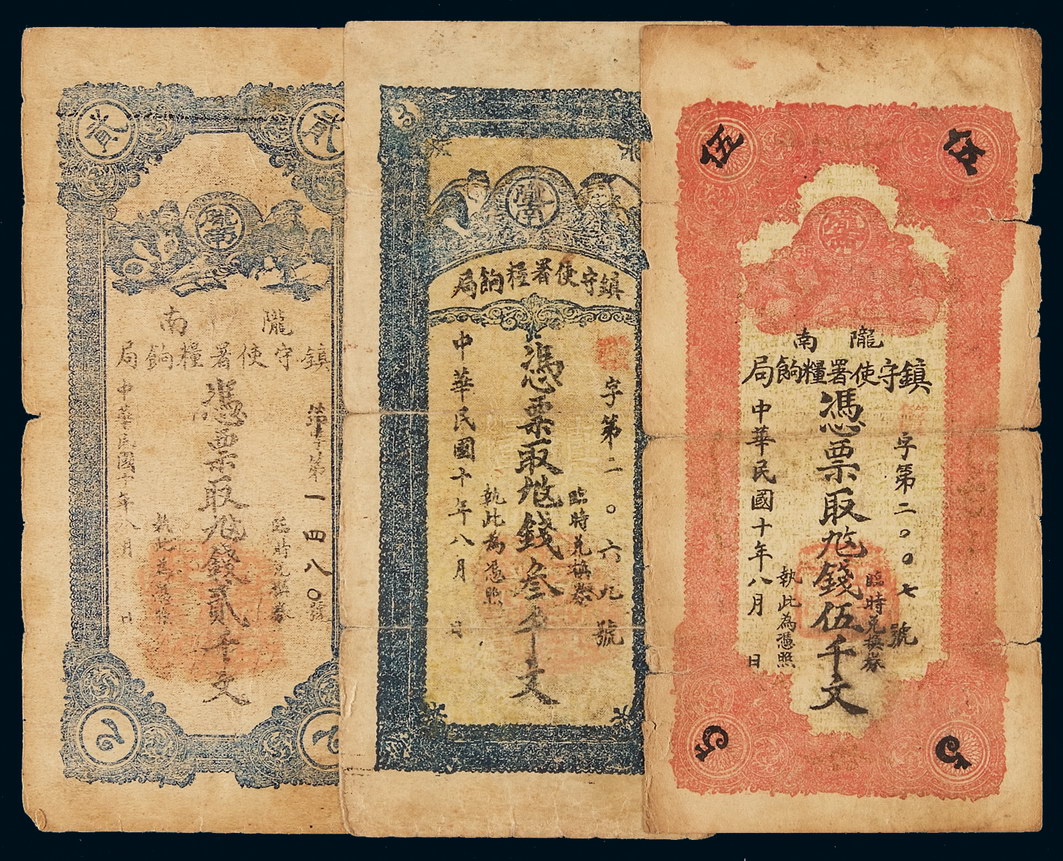 貳
隴南
隴南
鎮守使署糧餉局
字第一四八〇號
臨時兌換券
憑票取尨錢貳千文
執此為憑照
中華民國十年八月 日
2
3
隴南
鎮守使署糧餉局
字第二〇六九號
臨時兌換券
憑票取尨錢叄千文
執此為憑照
中華民國十年八月 日
伍
伍
隴南
隴南
鎮守使署糧餉局
字第二〇〇七號
臨時兌換券
憑票取尨錢伍千文
執此為憑照
中華民國十年八月 日
5
5